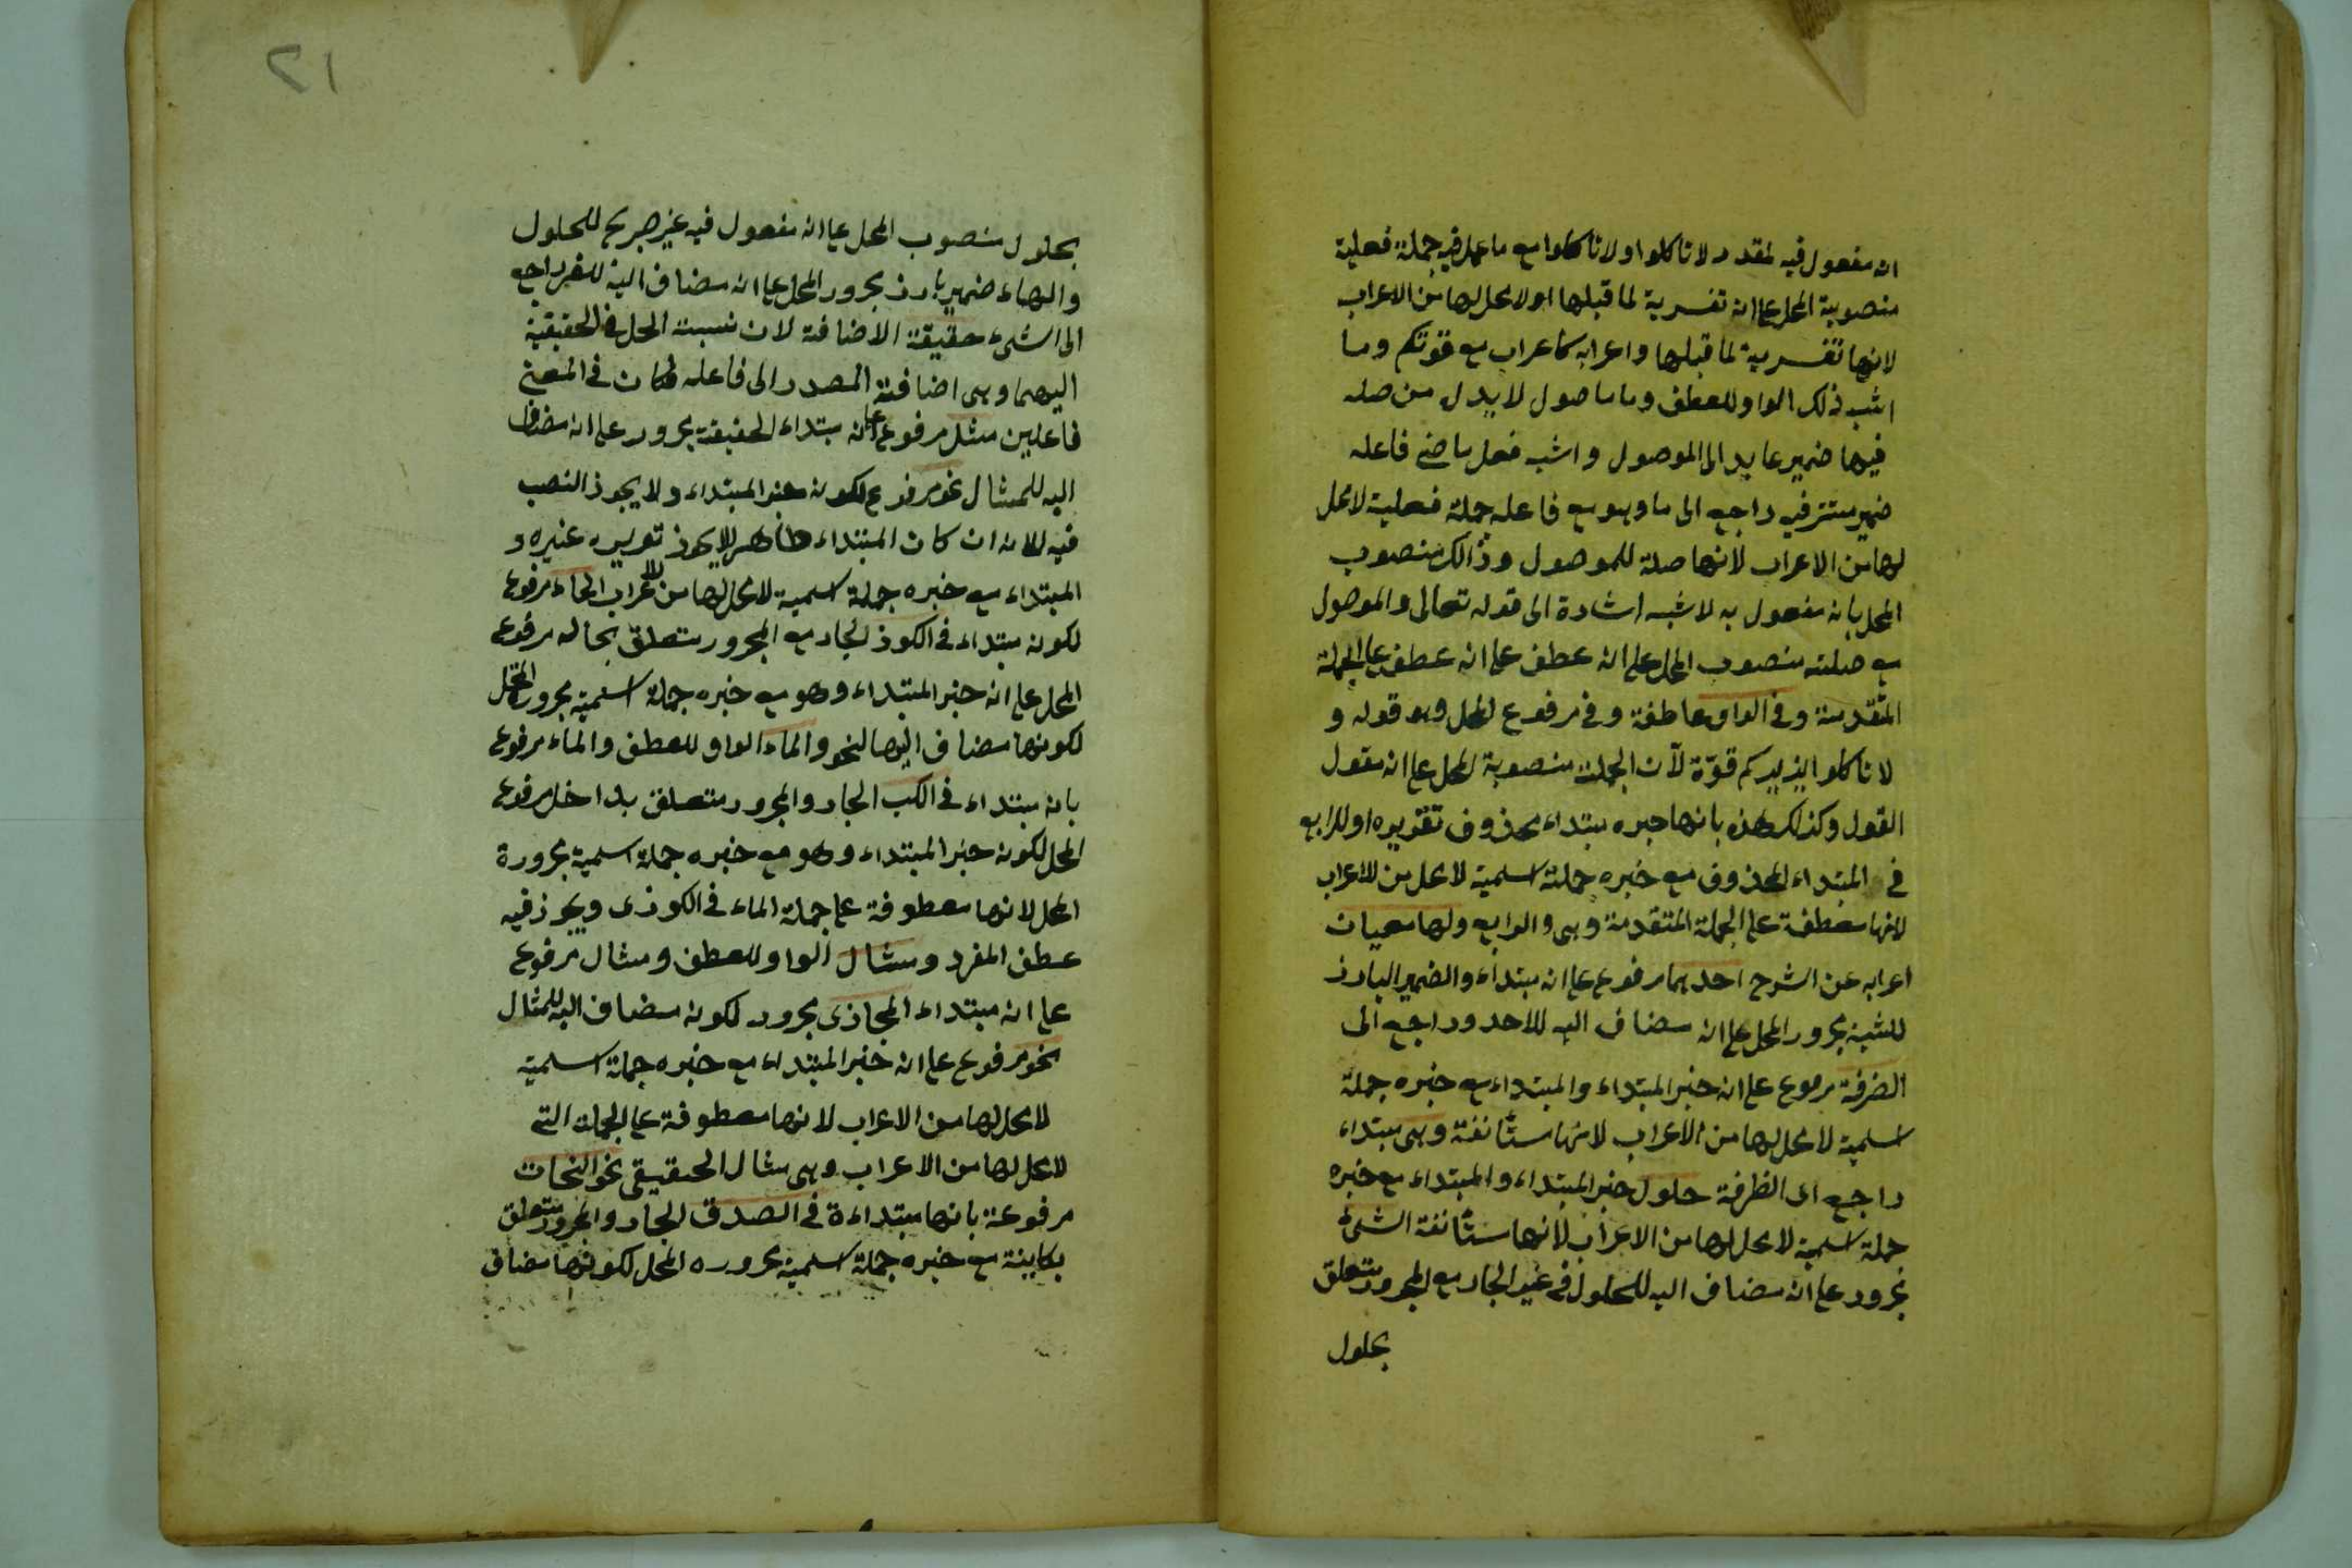 انه مفعول فيه لمقدر لا تاكلوا ولا تاكلوا مع ما عمل فيه جملة فعلية
منصوبة المحل على انه تفسرية لما قبلها او لا محل لها من الاعراب
لانها تفسرية لما قبلها واعرابه كاعراب مع قوتكم وما
اشبه ذلك الواو للعطف وما ماصول لا يدل من صله
فيها ضمير عايد الى الموصول واشبه فعل ماضى فاعله
ضمير مستتر فيه راجع الى ما وهو مع فاعله جملة فعلية لا محل
لها من الاعراب لانها صلة للموصول وذالك منصوب
المحل بانه مفعول به لاشبه اشارة الى قوله تعالى والموصول
مع صلته منصوب المحل على انه عطف على انه عطف على الجملة
المتقدمة وفى الواو عاطفة وفى مرفوع المحل وهو قوله و
لا تاكلوا يزيدكم قوّة لان الجملة منصوبة المحل على انه مقول
القول وكذلك هذه بانها خبره مبتداء محذوف تقويره او للرابع
فى المبتداء المحذوف مع خبره جملة اسمية لا محل من للاعراب
لانها معطفة على الجملة المتقدمة وهى والرابع ولها معيان
اعرابه عن الشرح احديهما مرفوع على انه مبتداء والضمير البارز
للشية مجرور المحل على انه مضاف اليه للاحد وراجع الى
الضرفة مرموع على انه خبر المبتداء والمبتداء مع خبره جملة
اسمية لا محل لها من الاعراب لانها مستأنفة وهى مبتداء
راجع الى الظرفة حلول خبر المبتداء والمبتداء مع خبره
جملة اسمية لا محل لها من الاعراب لانها مستأنفة الشئ
مجرور على انه مضاف اليه للحلول فى غير الجار مع المجرور متعلق
بحلول
٢١
بحلول منصوب المحل على انه مفعول فيه غير صريح للحلول
والهاء ضمير بارز مجرور المحل على انه مضاف اليه للغير راجع
الى الشئ حقيقة الاضافة لان نسبت الحل فى الحقيقية
اليهما وهى اضافة المصدر الى فاعله فكان فى المعنى
فاعلين مثل مرفوع على انه مبتداء الحقيقة مجرور على انه مضاف
اليه للمثال نحو مرفوع لكونه خبر المبتداء ولا يجوز النصب
فيه للانه ان كان المبتداء ظاهر لا يجوز تقويره غيره و
المبتداء مع خبره جملة اسمية لا محل لها من الاعراب الماء مرفوع
لكونه مبتداء فى الكوز الجار مع المجرور متعلق بحاله مرفوع
المحل على انه خبر المبتداء وهو مع خبره جملة اسمية مجرور المحل
لكونها مضاف اليها لنحو والماء الواو للعطف والماء مرفوع
بانه مبتداء فى الكب الجار والمجرور متعلق بداخل مرفوع
المحل لكونه خبر المبتداء وهو مع خبره جملة اسمية مجرورة
المحل لانها معطوفة على جملة الماء فى الكوزى ويجوز فيه
عطف المفرد ومثال الواو للعطف ومثال مرفوع
على انه مبتداء المجازى مجرور لكونه مضاف اليه للمثال
نحو مرفوع على انه خبر المبتداء مع خبره جملة اسمية
لا محل لها من الاعراب لانها معطوفة على الجملة التى
لا محل لها من الاعراب وهى مثال الحقيقى نحو النجات
مرفوعة بانها مبتداءة فى الصدق الجار والمجرور متعلق
بكاينة مع خبره جملة اسمية مجروره المحل لكونها مضاف